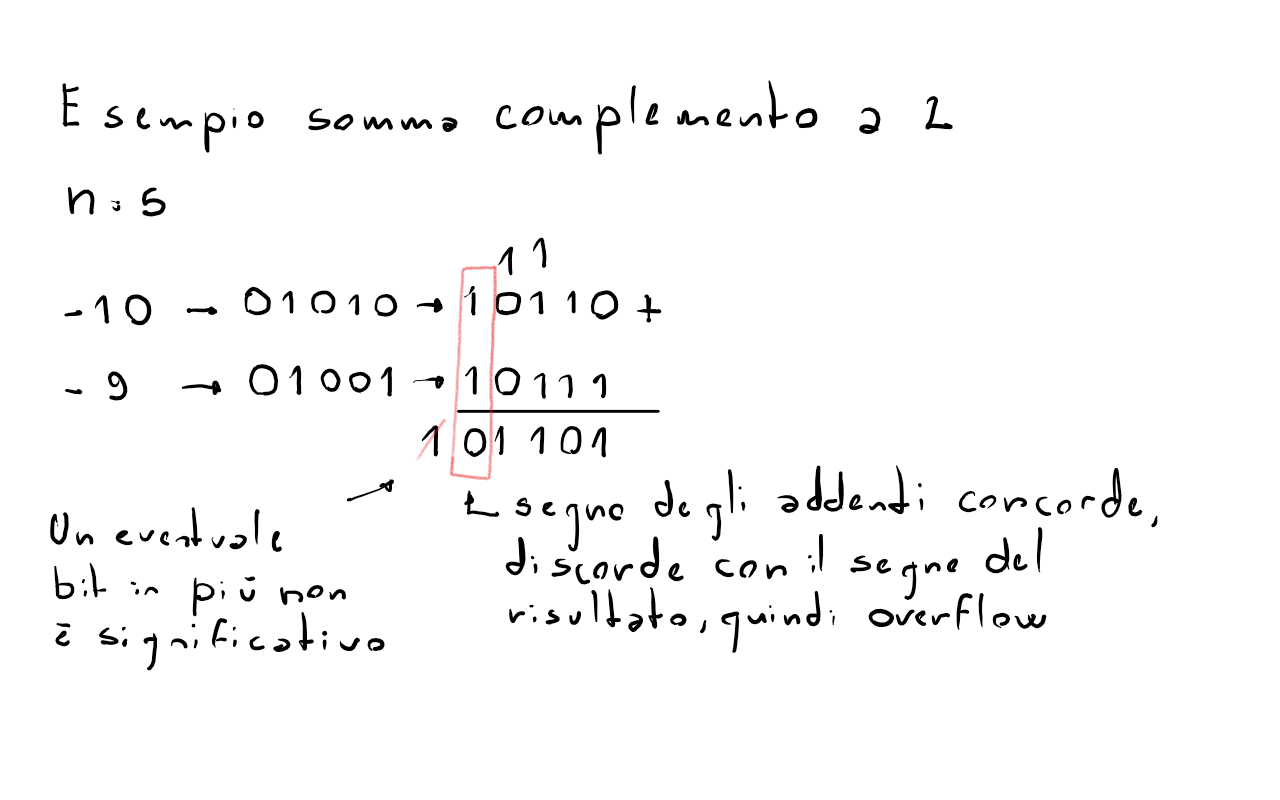 Esempio somma complemento a 2
n = 5
1 1
-10 → 01010 → 10110 +
-9 → 01001 → 10111
1 01101
Un eventuale
bit in più non
è significativo
segno degli addendi concorde,
discorde con il segno del
risultato, quindi overflow